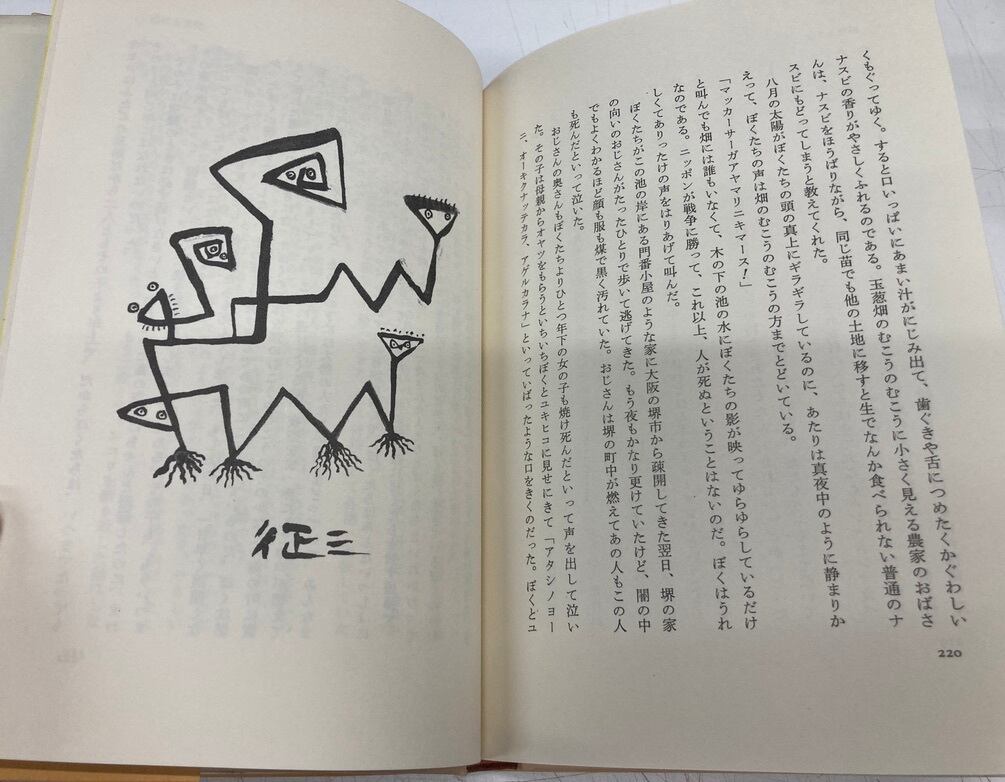 くもぐってゆく。すると口いっぱいにあまい汁がにじみ出て、歯ぐきや舌につめたくかぐわしい
ナスビの香りがやさしくふれるのである。玉葱畑のむこうのむこうに小さく見える農家のおばさ
んは、ナスビをほうばりながら、同じ苗でも他の土地に移すと生でなんか食べられない普通のナ
スビにもどってしまうと教えてくれた。
八月の太陽がぼくたちの頭の真上にギラギラしているのに、あたりは真夜中のように静まりか
えって、ぼくたちの声は畑のむこうのむこうの方までとどいている。
「マッカーサーガアヤマリニキマース！」
と叫んでも畑には誰もいなくて、木の下の池の水にぼくたちの影が映ってゆらゆらしているだけ
なのである。ニッポンが戦争に勝って、これ以上、人が死ぬということはないのだ。ぼくはうれ
しくてありったけの声をはりあげて叫んだ。
ぼくたちがこの池の岸にある門番小屋のような家に大阪の堺市から疎開してきた翌日、堺の家
の向いのおじさんがたったひとりで歩いて逃げてきた。もう夜もかなり更けていたけど、闇の中
でもよくわかるほど顔も服も煤で黒く汚れていた。おじさんは堺の町中が燃えてあの人もこの人
も死んだといって泣いた。
おじさんの奥さんもぼくたちよりひとつ年下の女の子も焼け死んだといって声を出して泣い
た。その子は母親からオヤツをもらうといちいちぼくとユキヒコに見せにきて「アタシノヨー
ニ、オーキクナッテカラ、アゲルカラナ」といっていばったような口をきくのだった。ぼくとユ
220
征三